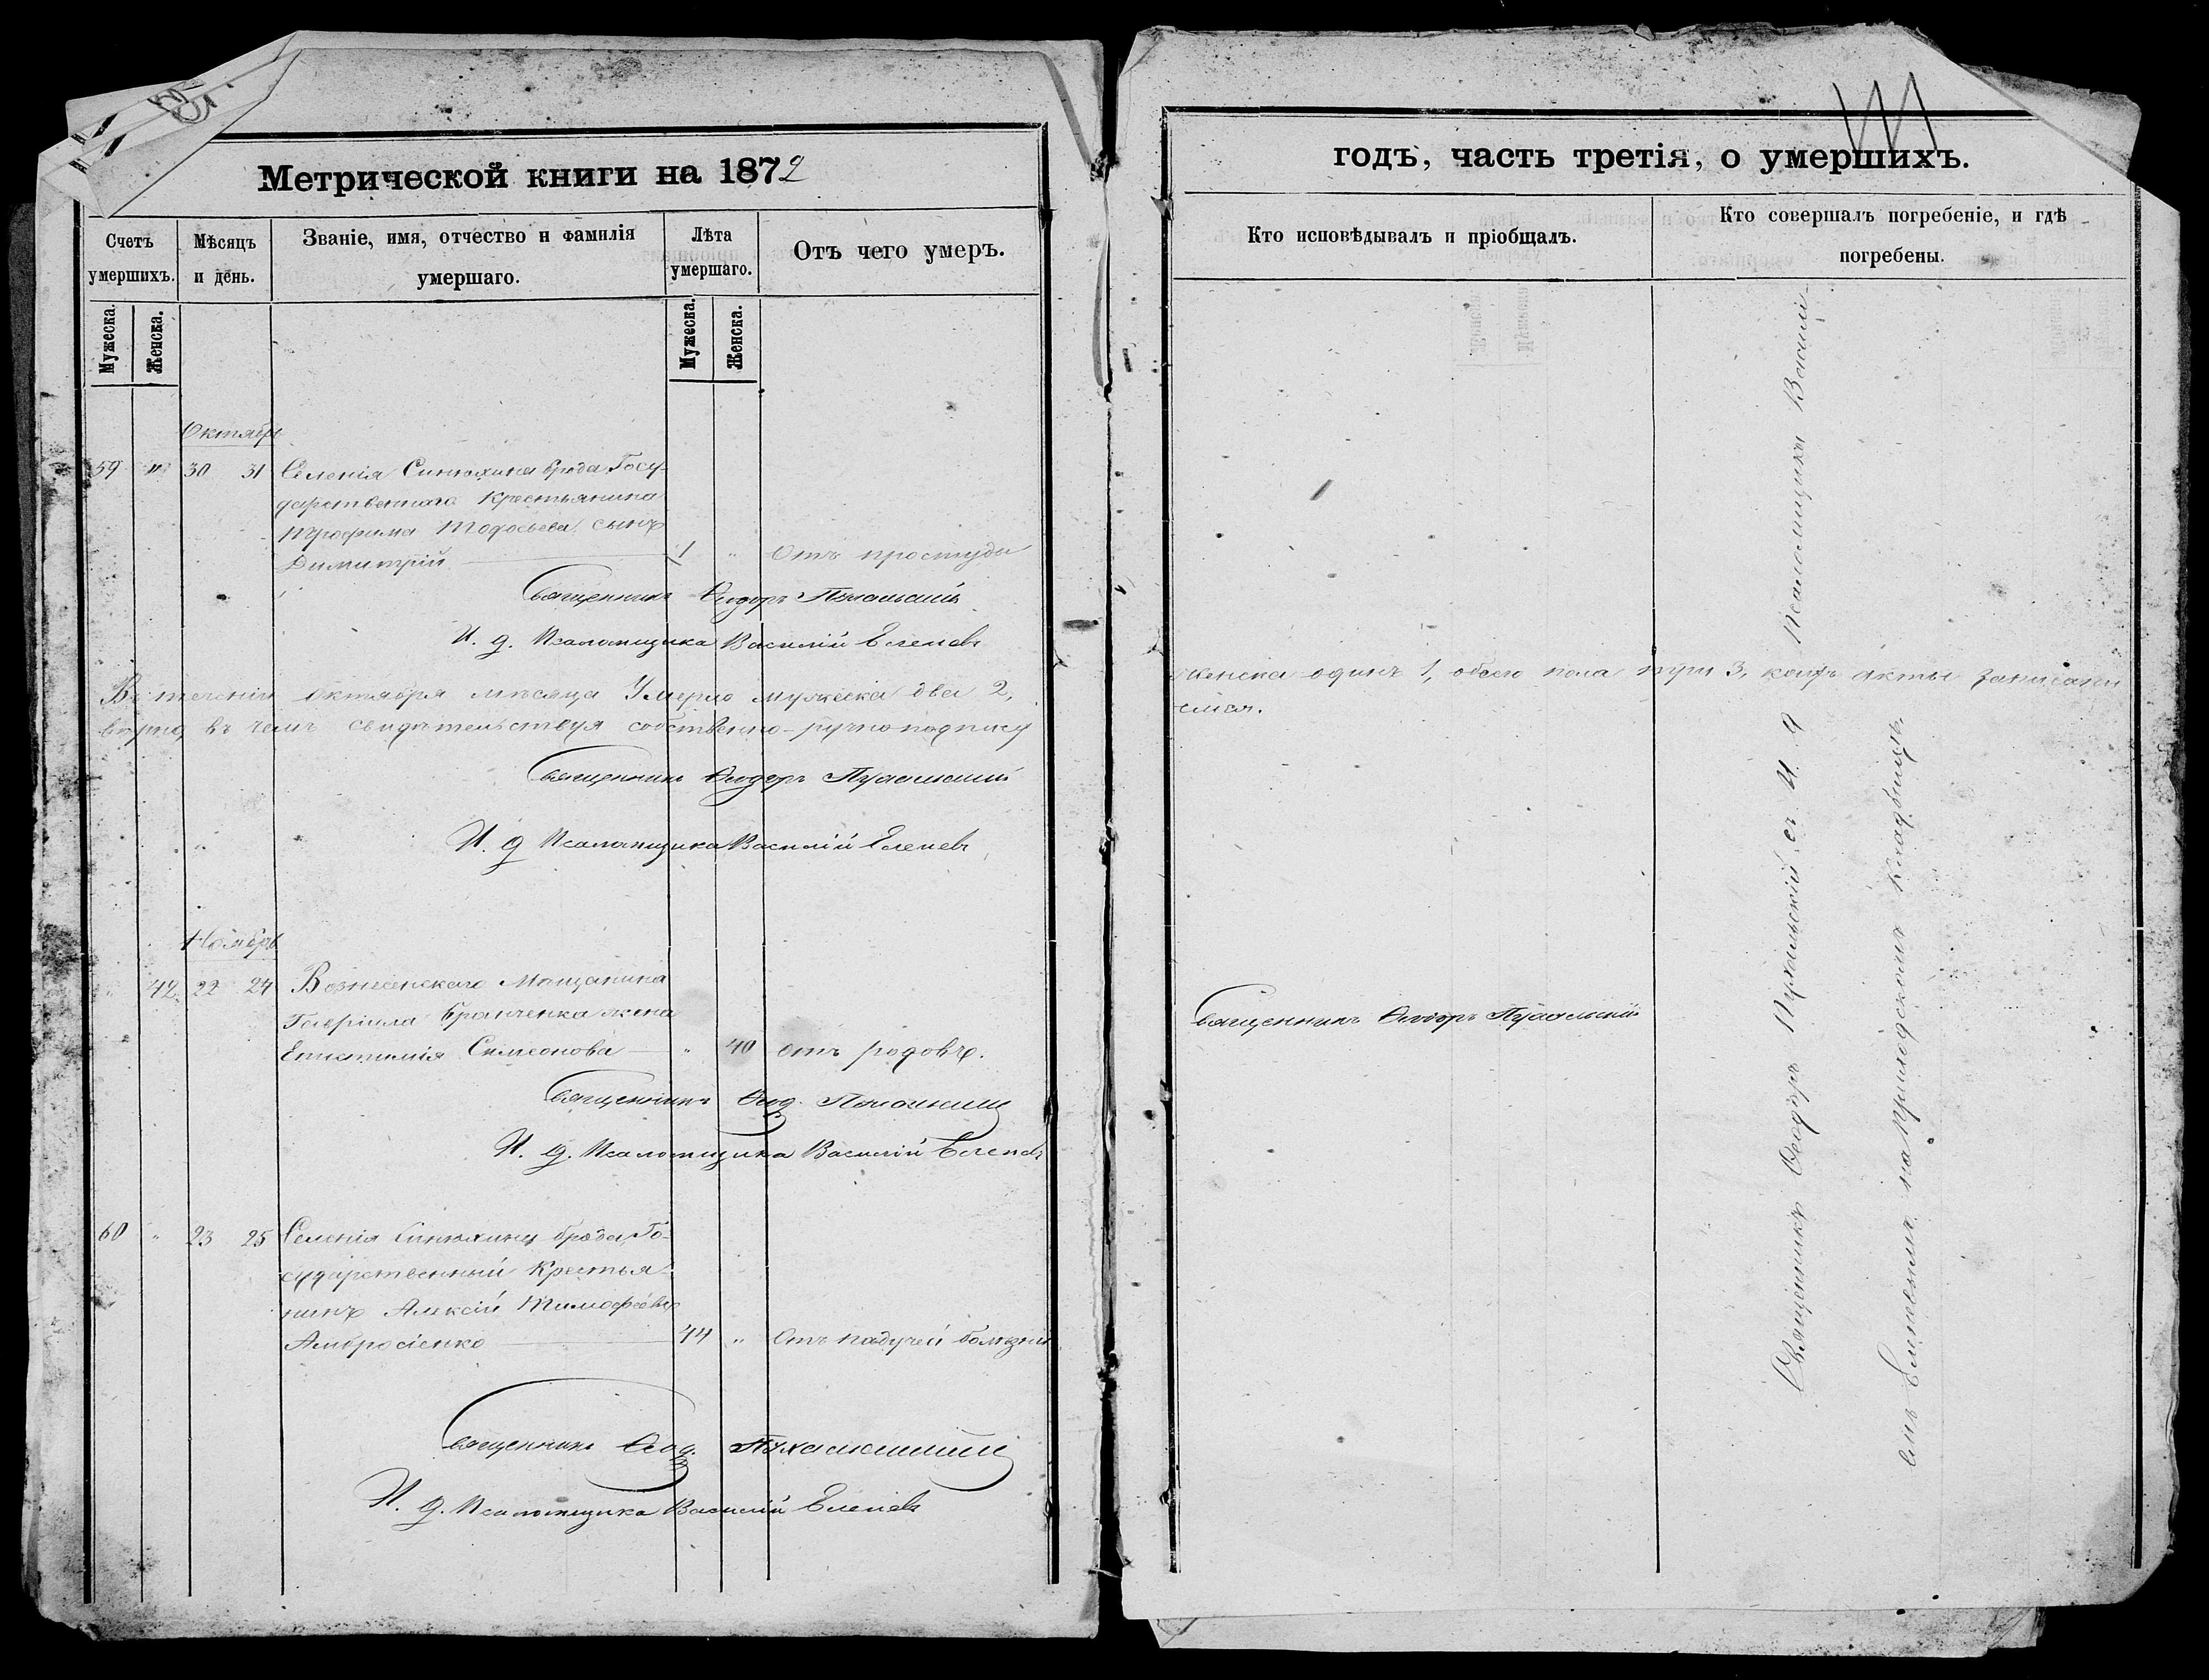 Метрической книги на 1872
Счетъ умершихъ.
Мѣсяцъ и день.
Званіе, имя, отчество и фамилія умершаго.
Лѣта умершаго.
Отъ чего умеръ.
Мужеска.
Женска.
Мужеска.
Женска.
Октябрь
59 " 30 31 Селенія Синюхина брода Госу-
дарственнаго Крестьянина
Трофима Тодосьева сынъ
Димитрій 1 " Отъ простуды
Священникъ Ѳеодоръ Пухальскій
И. д. Псаломщика Василій Еленевъ
Въ теченіи Октября мѣсяца Умерло мужеска два 2,
вѣрно, въ чемъ свидѣтельствуя собственно-ручно подпису
Священникъ Ѳеодоръ Пухальскій
И. д. Псаломщика Василій Еленевъ
Ноябрь
" 42 22 24 Вознесенскаго Мѣщанина
Гавріила жена
Епистимія Симеонова " 40 отъ родовъ.
Священникъ Ѳеод. Пухальскій
И. д. Псаломщика Василій Еленевъ
60 " 23 25 Селенія Синюхина брода Го-
сударственный Крестья-
нинъ Алексій Тимофеевъ
Амвросіенко 44 " Отъ падучей болѣзни
Священникъ Ѳеод. Пухальскій
И. д. Псаломщика Василій Еленевъ
годъ, часть третія, о умершихъ.
Кто исповѣдывалъ и пріобщалъ.
Кто совершалъ погребеніе, и гдѣ погребены.
женска одинъ 1, обоего пола три 3, акты записаны
емся.
Священникъ Ѳеодоръ Пухальскій
Священникъ Ѳеодоръ Пухальскій съ И. д Псаломщика Василі-
емъ Еленевымъ на Приходскомъ кладбищѣ.